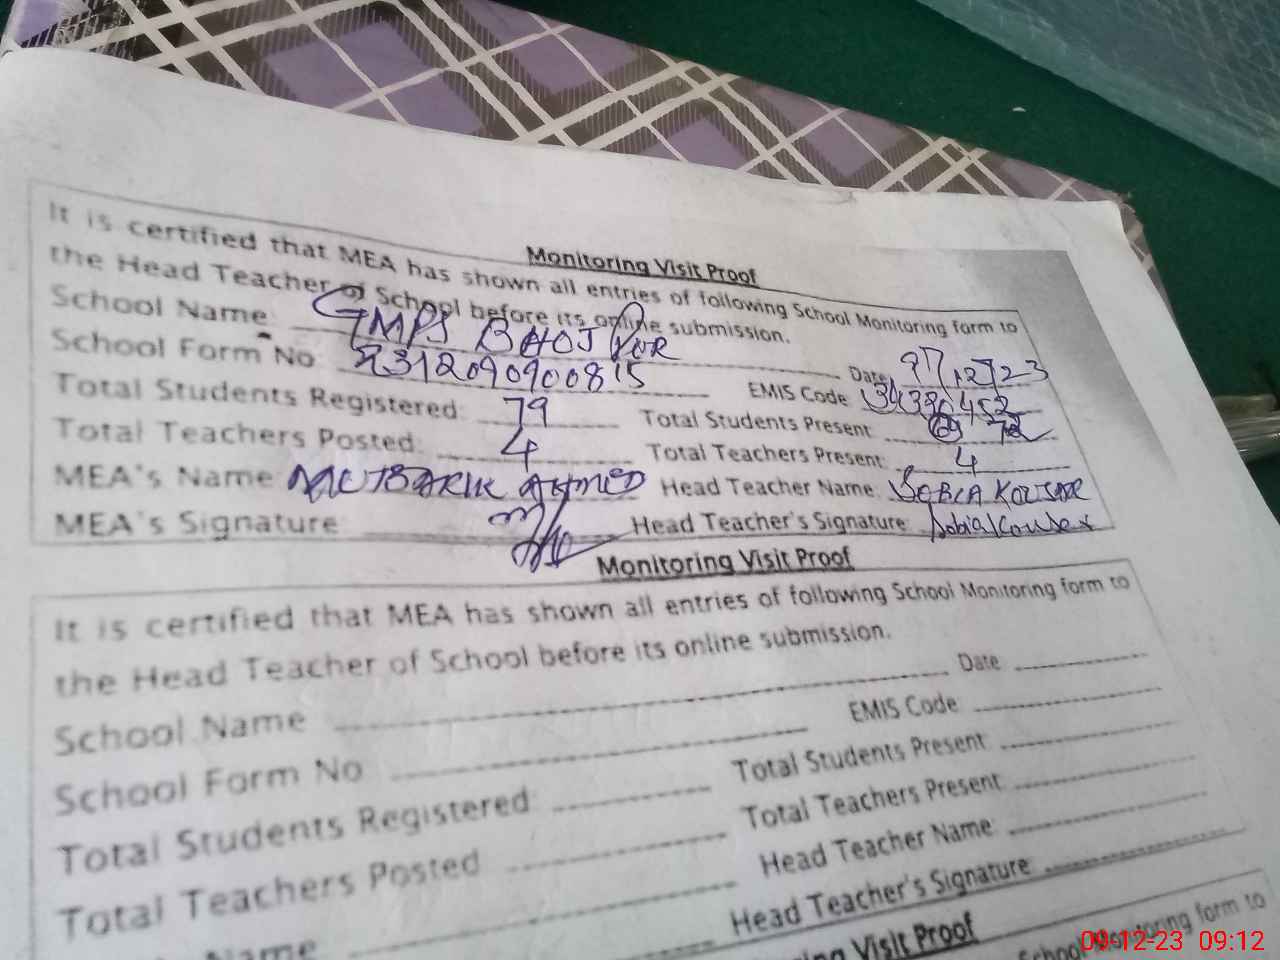 Monitoring Visit Proof
It is certified that MEA has shown all entries of following School Monitoring form to
the Head Teacher of School before its online submission.
School Name: GMPS BHOJ PUR Date 12/23
School Form No 2312090900815 EMIS Code
Total Students Registered: 79 Total Students Present:
Total Teachers Posted: 4 Total Teachers Present: 4
MEA's Name: AHMED Head Teacher Name: KOUSAR
MEA's Signature: Head Teacher's Signature: Sobia Kousar
Monitoring Visit Proof
It is certified that MEA has shown all entries of following School Monitoring form to
the Head Teacher of School before its online submission.
School Name Date
School Form No EMIS Code
Total Students Registered: Total Students Present:
Total Teachers Posted Total Teachers Present:
Name Head Teacher Name:
Head Teacher's Signature
Visit Proof
School Monitoring form to
09-12-23 09:12